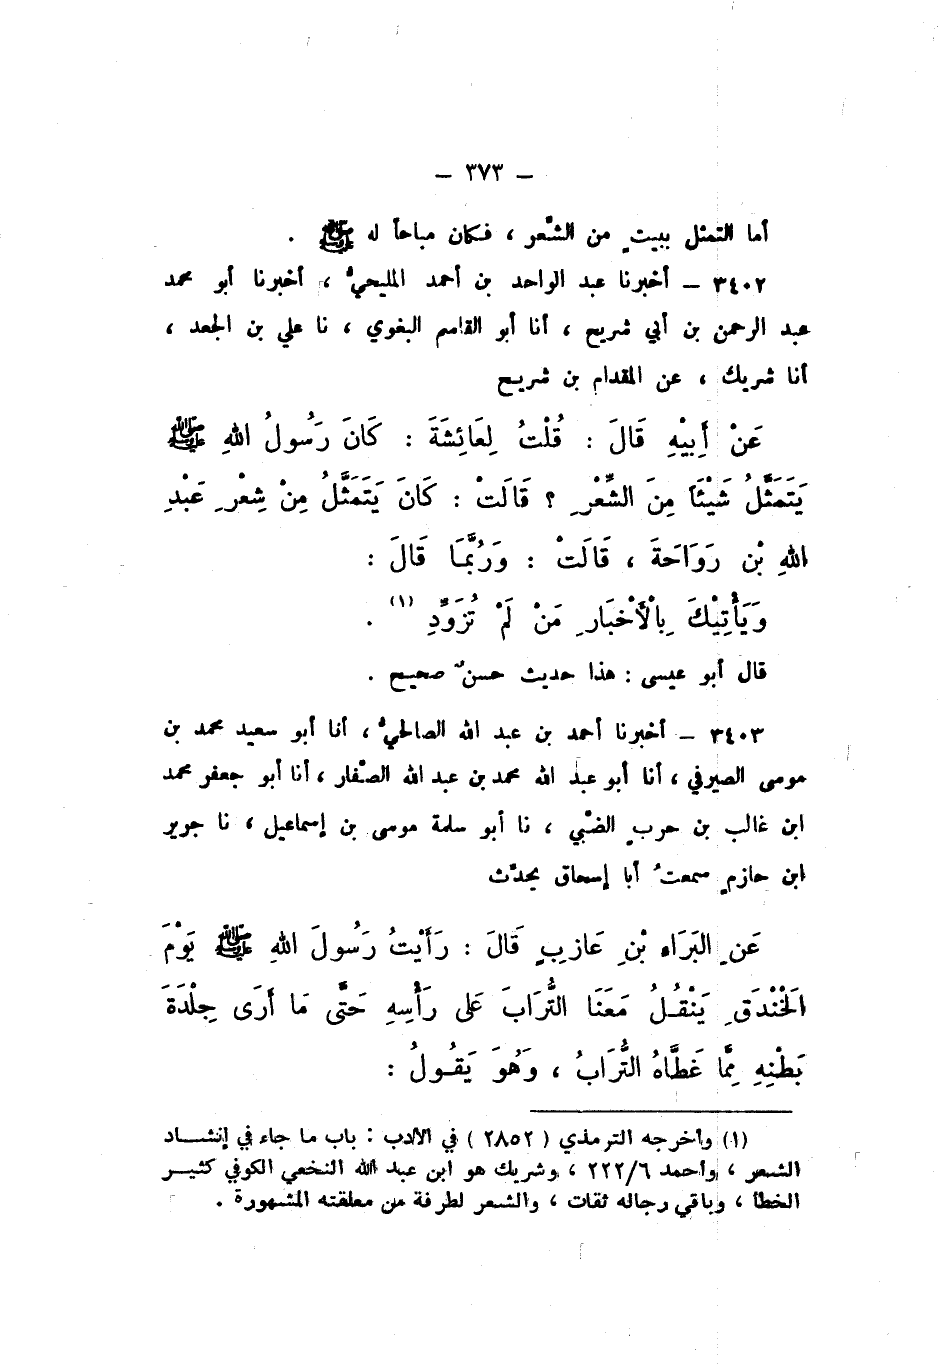 – ٣٧٣ –
أما التمثل ببيتٍ من الشّعر ، فكان مباحاً له ﷺ .
٣٤٠٢ – أخبرنا عبد الواحد بن أحمد المليحيُّ ، أخبرنا أبو محمد
عبد الرحمن بن أبي شريح ، أنا أبو القاسم البغوي ، نا علي بن الجعد ،
أنا شريك ، عن المقدام بن شريح
عَنْ أَبِيْهِ قَالَ : قُلْتُ لِعَائِشَةَ : كَانَ رَسُولُ اللهِ ﷺ
يَتَمَثَّلُ شَيْئَاً مِنَ الشِّعْرِ ؟ قَالَتْ : كَانَ يَتَمَثَّلُ مِنْ شِعْرِ عَبْدِ
اللهِ بْنِ رَوَاحَةَ ، قَالَتْ : وَرُبَّمَا قَالَ :
وَيَأْتِيْكَ بِالْأَخْبَارِ مَنْ لَمْ تُزَوِّدِ (١) .
قال أبو عيسى : هذا حديث حسنٌ صحيح .
٣٤٠٣ – أخبرنا أحمد بن عبد الله الصالحيُّ ، أنا أبو سعيد محمد بن
موسى الصيرفي ، أنا أبو عبد الله محمد بن عبد الله الصفّار ، أنا أبو جعفر محمد
ابن غالب بن حربٍ الضبّي ، نا أبو سلمة موسى بن إسماعيل ، نا جرير
ابن حازمٍ سمعتُ أبا إسحاق يحدّث
عَنِ البَرَاءِ بْنِ عَازِبٍ قَالَ : رَأَيْتُ رَسُولَ اللهِ ﷺ يَوْمَ
الْخَنْدَقِ يَنْقُلُ مَعَنَا التُّرَابَ عَلَى رَأْسِهِ حَتَّى مَا أَرَى جِلْدَةَ
بَطْنِهِ مِمَّا غَطَّاهُ التُّرَابُ ، وَهُوَ يَقُولُ :
(١) وأخرجه الترمذي ( ٢٨٥٢ ) في الأدب : باب ما جاء في إنشاد
الشعر ، وأحمد ٢٢٢/٦ ، وشريك هو ابن عبد الله النخعي الكوفي كثير
الخطأ ، وباقي رجاله ثقات ، والشعر لطرفة من معلقته المشهورة .